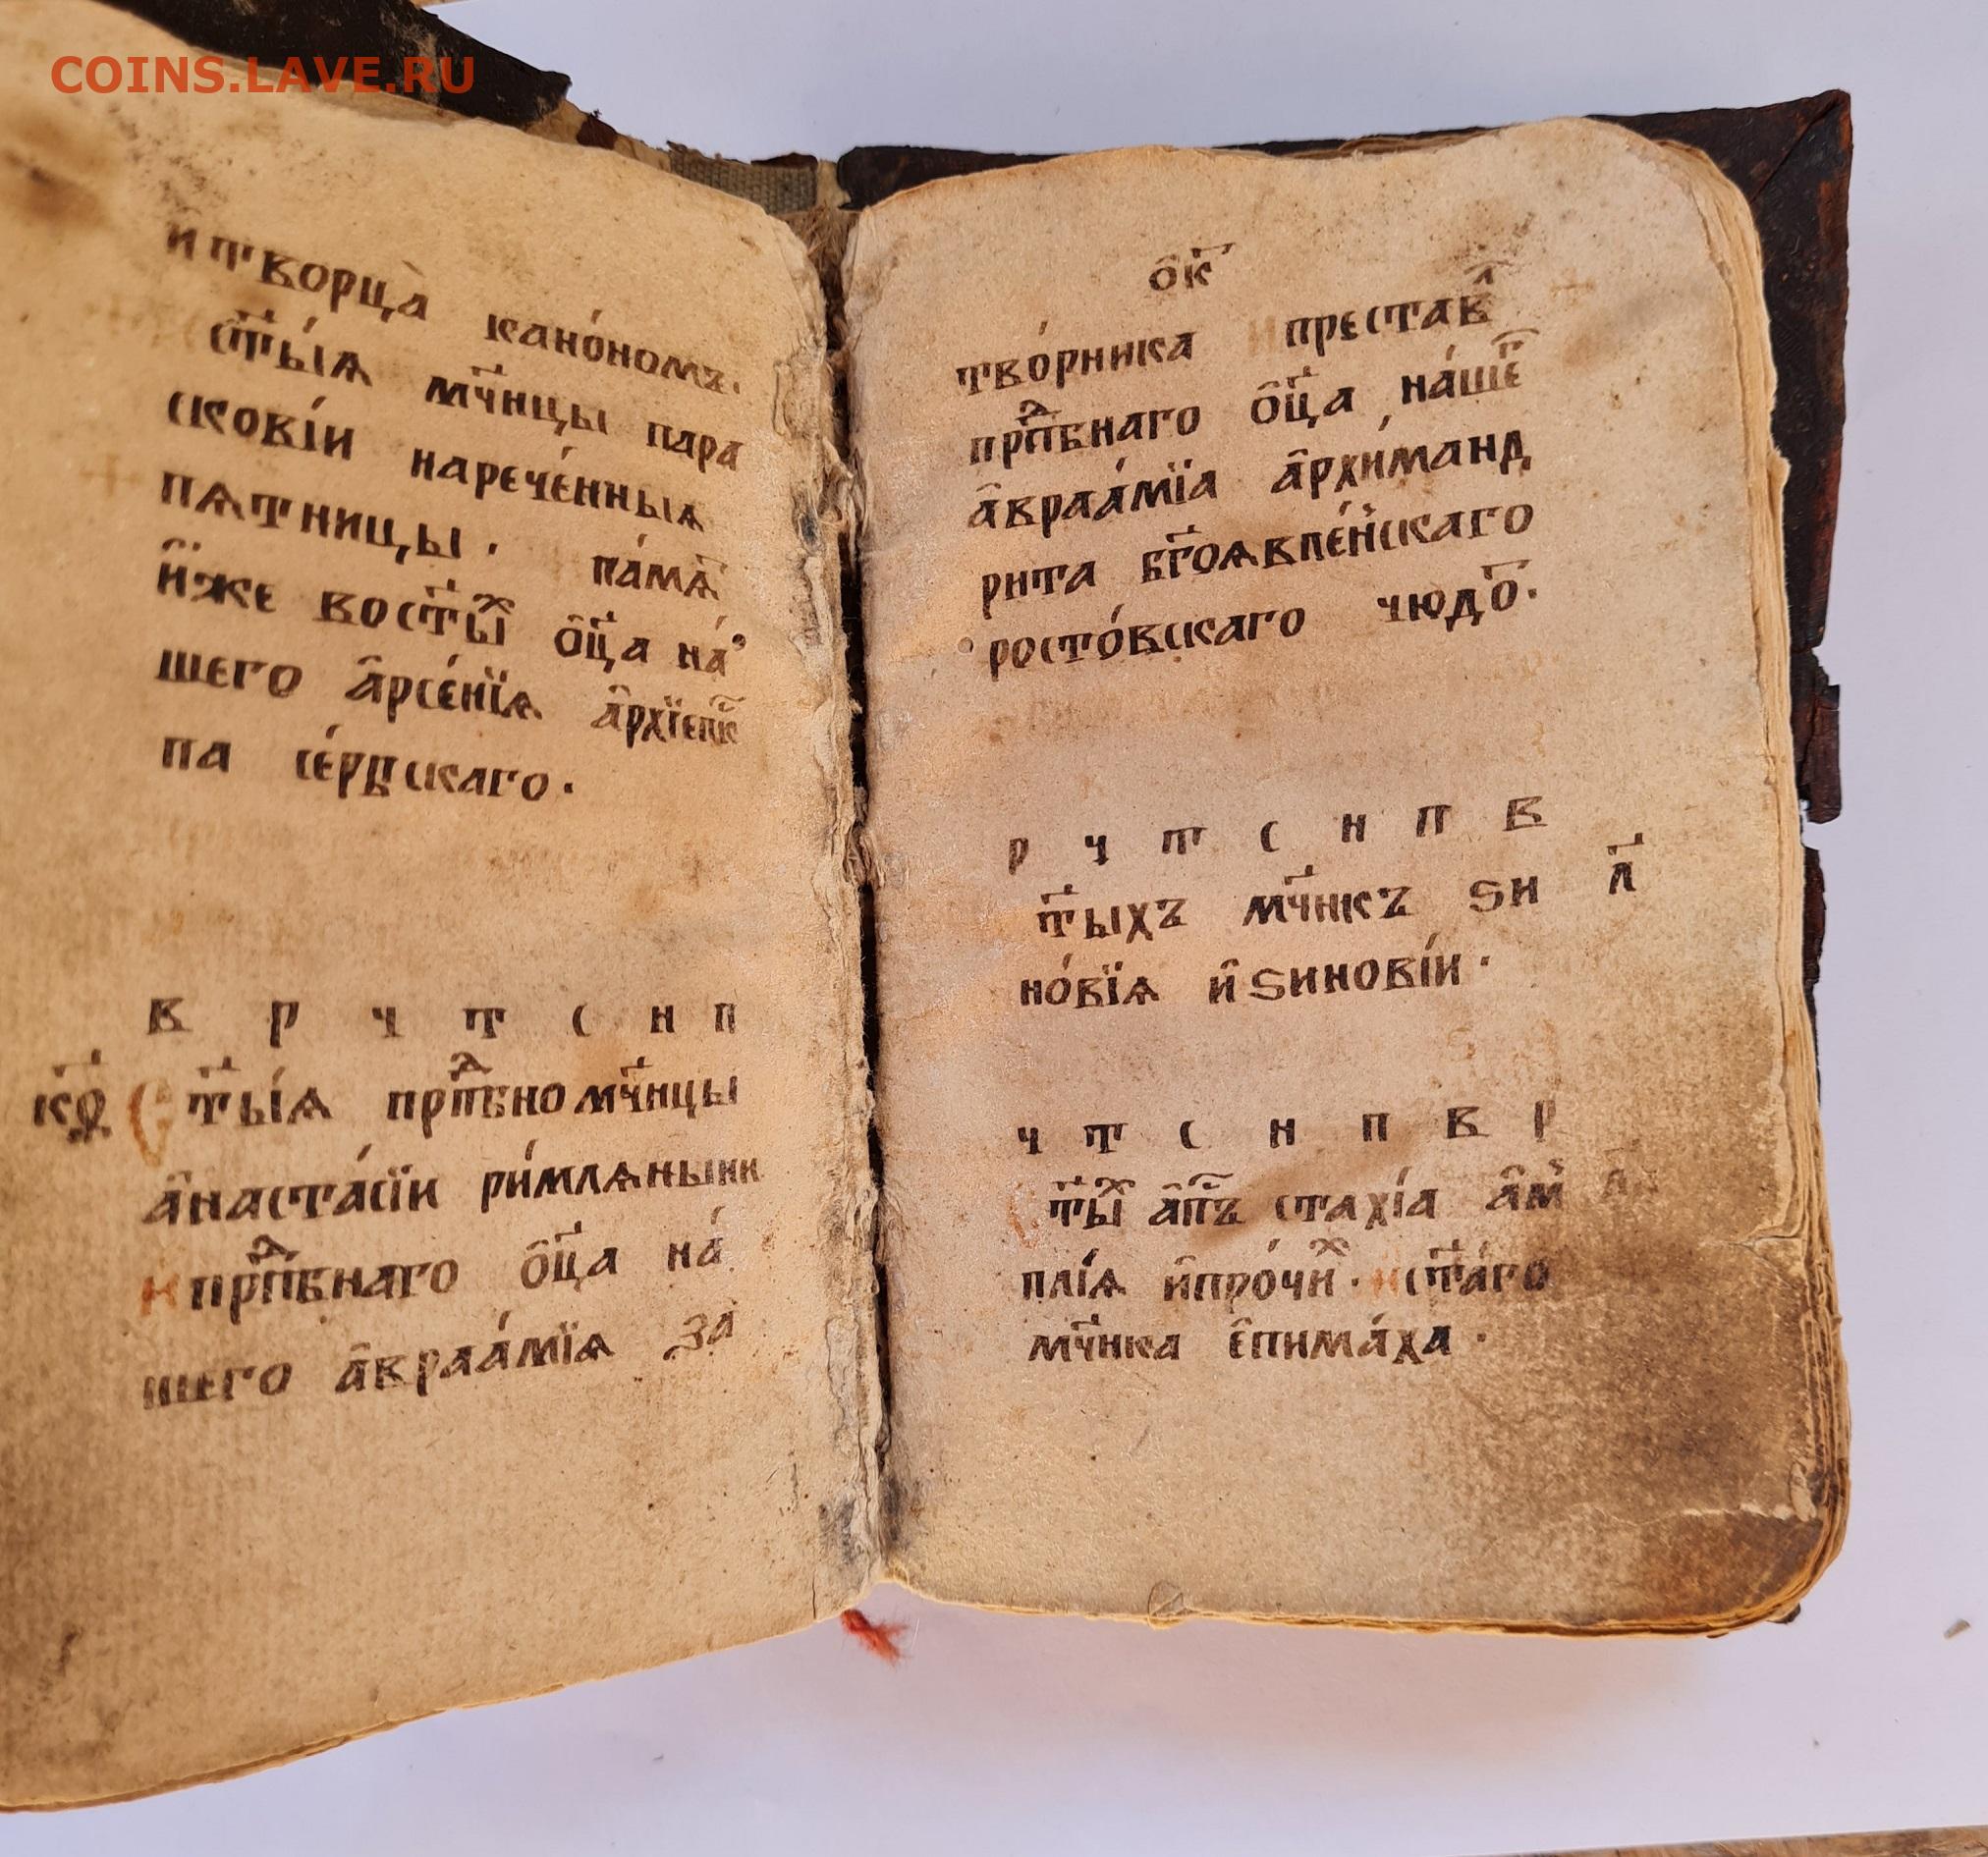 COINS.LAVE.RU
и творца̀ кано́номъ.
ст҃ы́ѧ мч҃нцы пара
скові́и нарече́нныѧ
пѧтницы. па́мѧ
и҆́же во ст҃ы́х ѻ҆ц҃а на́
шего а҆рсе́нїѧ а҆рхїепк
па се́рбскаго.
в р ч т с н п
к҃ѳ ст҃ы́ѧ прпд҃бномч҃нцы
а҆наста́сїи ри́млѧныни
и прпд҃бнаго ѻ҆ц҃а на́
шего а҆враа́мїѧ за
ѻ҆к҃
тво́рника и преставл
прпд҃бнаго ѻ҆ц҃а на́шег
а҆враа́мїа а҆рхи́манд
рита бг҃оѧвле́нскаго
росто́вскаго чюдо.
р ч т с н п в
т҃ыхъ мч҃нкъ ѕи л҃
но́вїѧ и҆ ѕиновіи.
ч т с н п в р
ст҃ы́х а҆пⷭ҇лъ стахі́а а҆м
плі́ѧ и҆ про́чих. и ст҃а́го
мч҃нка є҆пима́ха.